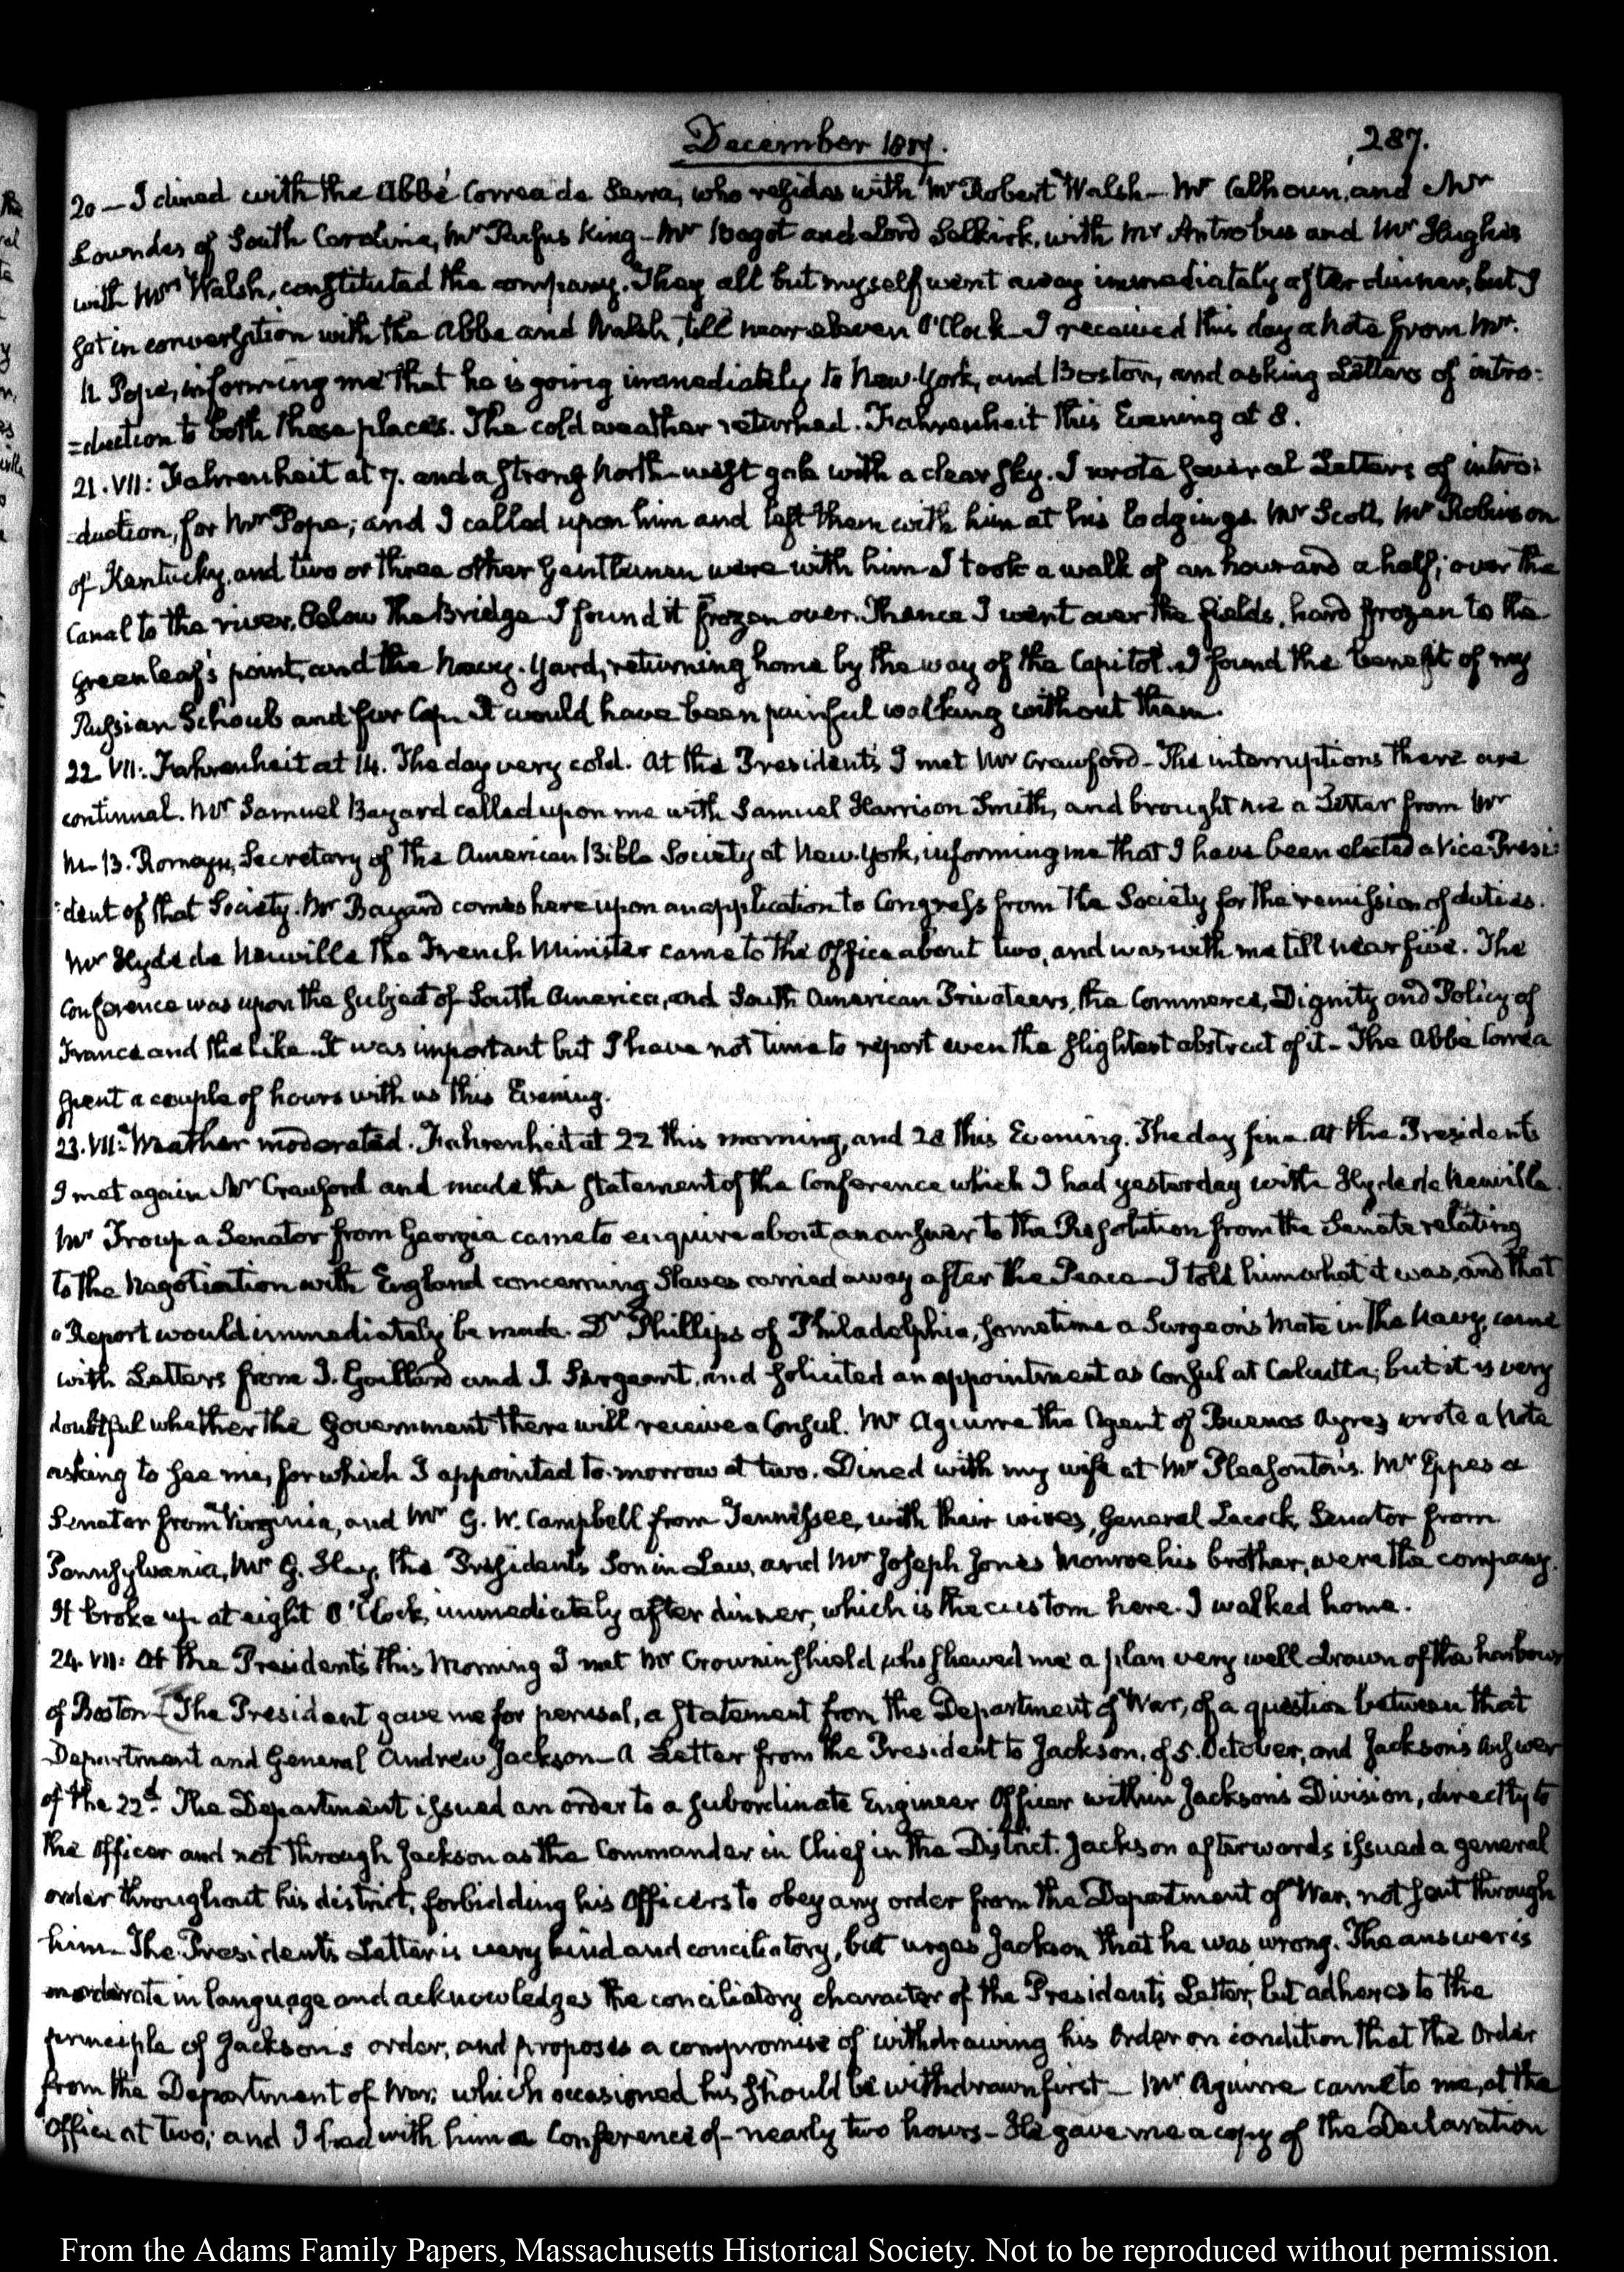 December 1817.
287.
20 — I dined with the Abbé Correa de Serra, who resides with Mr Robert Walsh — Mr Calhoun, and Mr
Lowndes of South Carolina, Mr Rufus King — Mr Bagot and Lord Selkirk, with Mr Antrobus and Mr Hughes
with Mrs Walsh, constituted the company. They all but myself went away immediately after dinner; but I
sat in conversation with the Abbé and Walsh, till near eleven O'Clock — I received this day a Note from Mr.
Pope, informing me that he is going immediately to New-York, and Boston, and asking Letters of intro:
=duction to both those places. The cold weather returned. Fahrenheit this Evening at 8.
21. VII: Fahrenheit at 7. and a strong North-west gale with a clear sky. I wrote several Letters of intro:
=duction, for Mr Pope; and I called upon him and left them with him at his lodgings. Mr Scott, Mr Robinson
of Kentucky, and two or three other Gentlemen were with him — I took a walk of an hour and a half; over the
Canal to the river, below the Bridge — I found it frozen over. Thence I went over the fields, hard frozen to the
Greenleaf's point, and the Navy-Yard, returning home by the way of the Capitol. I found the benefit of my
Russian Schoub and fur Cap. It would have been painful walking without them.
22. VII: Fahrenheit at 14. The day very cold. At the President's I met Mr Crawford — The interruptions there are
continual. Mr Samuel Bayard called upon me with Samuel Harrison Smith, and brought me a Letter from Mr
B. Romeyn, Secretary of the American Bible Society at New-York, informing me that I have been elected a Vice-Presi:
:dent of that Society. Mr Bayard comes here upon an application to Congress from the Society for the remission of duties.
Mr Hyde de Neuville the French Minister came to the Office about two, and was with me till near five. The
Conference was upon the subject of South America, and South American Privateers, the Commerce, Dignity and Policy of
France and the like. It was important but I have not time to report even the slightest abstract of it — The Abbé Correa
spent a couple of hours with us this Evening.
23. VII: Weather moderated. Fahrenheit at 22 this morning, and 28 this Evening. The day fine. At the President's
I met again Mr Crawford and made the statement of the Conference which I had yesterday with Hyde de Neuville.
Mr Troup a Senator from Georgia came to enquire about an answer to the Resolution from the Senate relating
to the Negotiation with England concerning Slaves carried away after the Peace — I told him what it was, and that
a Report would immediately be made. Dr Phillips of Philadelphia, sometime a Surgeon's Mate in the Navy, came
with Letters from J. Gaillard and J. Sergeant, and solicited an appointment as Consul at Calcutta; but it is very
doubtful whether the Government there will receive a Consul. Mr Aguirre the Agent of Buenos Ayres wrote a Note
asking to see me, for which I appointed to-morrow at two. Dined with my wife at Mr Pleasonton's. Mr Eppes a
Senator from Virginia, and Mr G. W. Campbell from Tennessee, with their wives, General Lacock, Senator from
Pennsylvania, Mr G. Hay, the President's Son in Law, and Mr Joseph Jones Monroe his brother, were the company.
It broke up at eight O'Clock, immediately after dinner, which is the custom here. I walked home.
24. VII: At the President's this Morning I met Mr Crowninshield who shewed me a plan very well drawn of the harbour
of Boston — The President gave me for perusal, a statement from the Department of War, of a question between that
Department and General Andrew Jackson — A Letter from the President to Jackson, of 5. October, and Jackson's Answer
of the 22d. The Department issued an order to a subordinate Engineer Officer within Jackson's Division, directly to
the Officer and not through Jackson as the Commander in Chief in the District. Jackson afterwards issued a general
order throughout his district, forbidding his Officers to obey any order from the Department of War, not sent through
him — The President's Letter is very kind and conciliatory, but urges Jackson that he was wrong. The answer is
moderate in language and acknowledges the conciliatory character of the President's Letter, but adheres to the
principle of Jackson's order, and proposes a compromise of withdrawing his Order on condition that the Order
from the Department of War; which occasioned his should be withdrawn first — Mr Aguirre came to me, at the
Office at two; and I had with him a Conference of nearly two hours — He gave me a copy of the Declaration
From the Adams Family Papers, Massachusetts Historical Society. Not to be reproduced without permission.